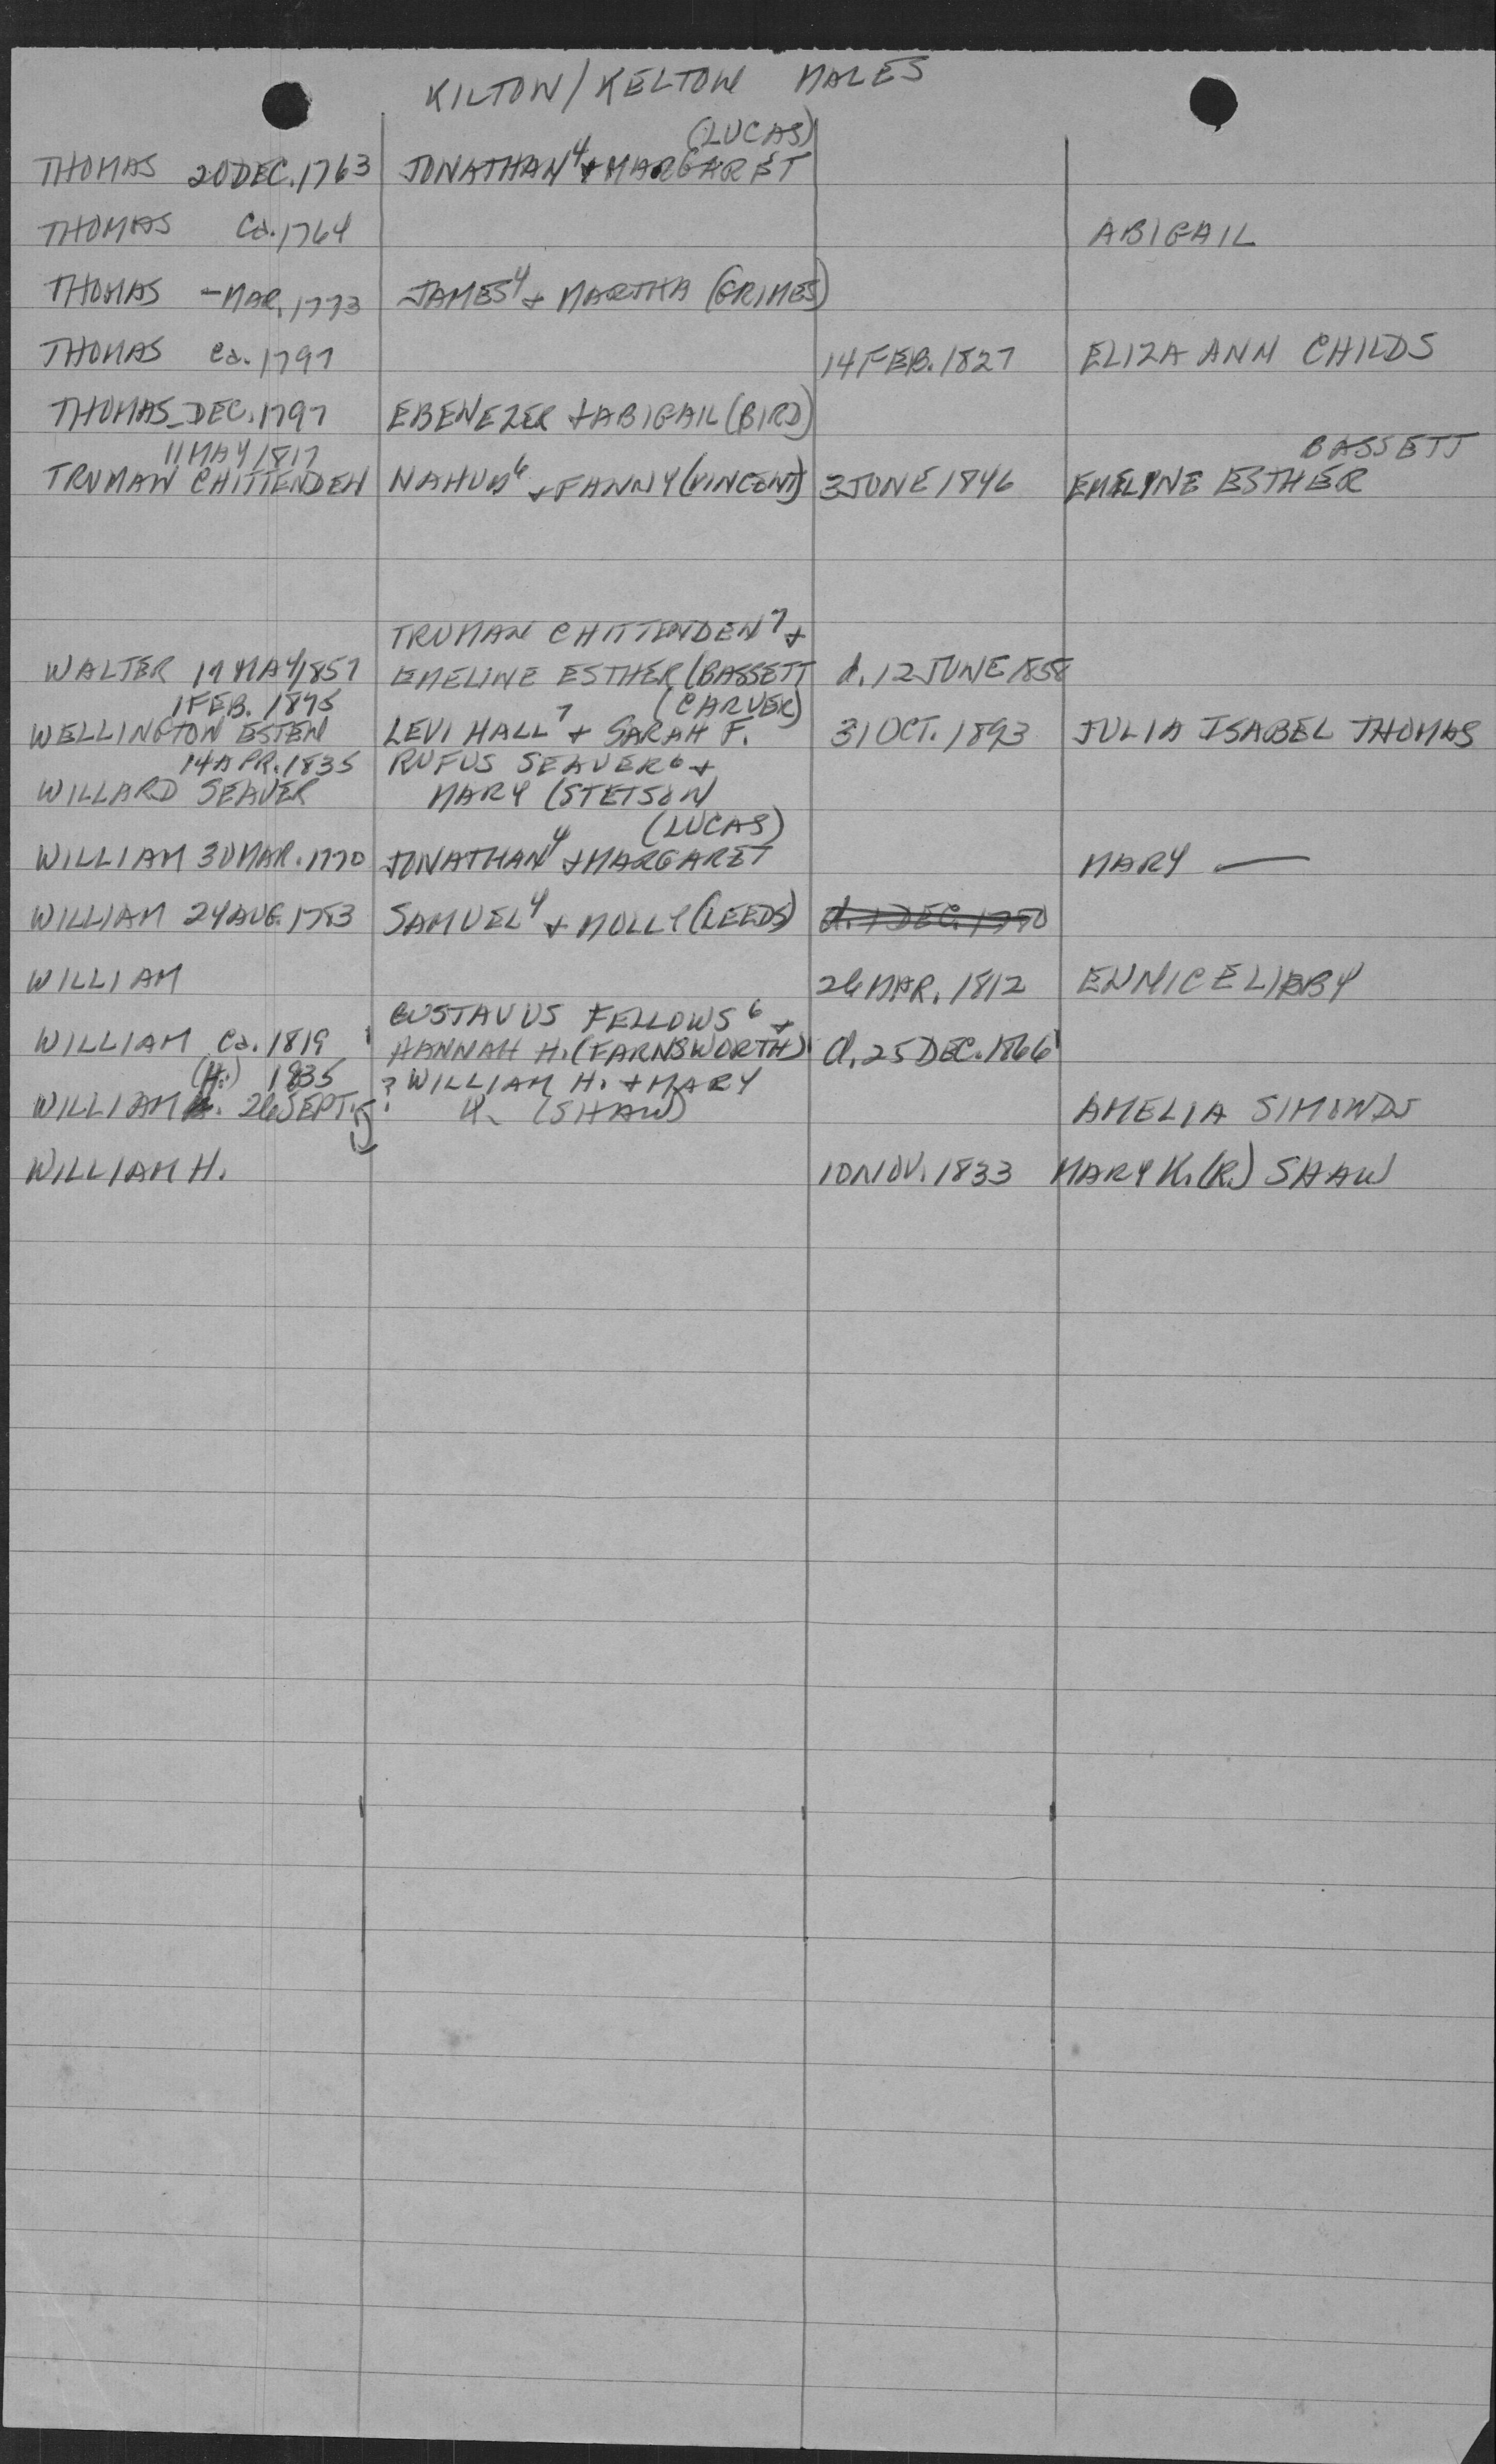 KILTON/KELTON MALES
(LUCAS)
THOMAS 20 DEC. 1763 JONATHAN⁴ + MARGARET
THOMAS Ca. 1764 ABIGAIL
THOMAS – MAR. 1773 JAMES⁴ + MARTHA (GRIMES)
THOMAS Ca. 1797 14 FEB. 1827 ELIZA ANN CHILDS
THOMAS – DEC. 1797 EBENEZER + ABIGAIL (BIRD)
11 MAY 1817 BASSETT
TRUMAN CHITTENDEN NAHUM⁶ + FANNY (VINCENT) 3 JUNE 1846 EMELINE ESTHER
TRUMAN CHITTENDEN⁷ +
WALTER 19 MAY 1857 EMELINE ESTHER (BASSETT d. 12 JUNE 1858
1 FEB. 1875 (CARVER)
WELLINGTON ESTEN LEVI HALL⁷ + SARAH F. 31 OCT. 1893 JULIA ISABEL THOMAS
14 APR. 1835 RUFUS SEAVER⁶ +
WILLARD SEAVER MARY (STETSON
(LUCAS)
WILLIAM 30 MAR. 1770 JONATHAN⁴ + MARGARET MARY —
WILLIAM 24 AUG. 1753 SAMUEL⁴ + MOLLY (LEEDS) d. 1 DEC. 1750
WILLIAM 26 MAR. 1812 EUNICE LIBBY
GUSTAVUS FELLOWS⁶ +
WILLIAM Ca. 1819 HANNAH H. (FARNSWORTH) d. 25 DEC. 1866
(H.) 1835 ? WILLIAM H. + MARY
WILLIAM 26 SEPT. K. (SHAW) AMELIA SIMONDS
WILLIAM H. 10 NOV. 1833 MARY K. (R.) SHAW